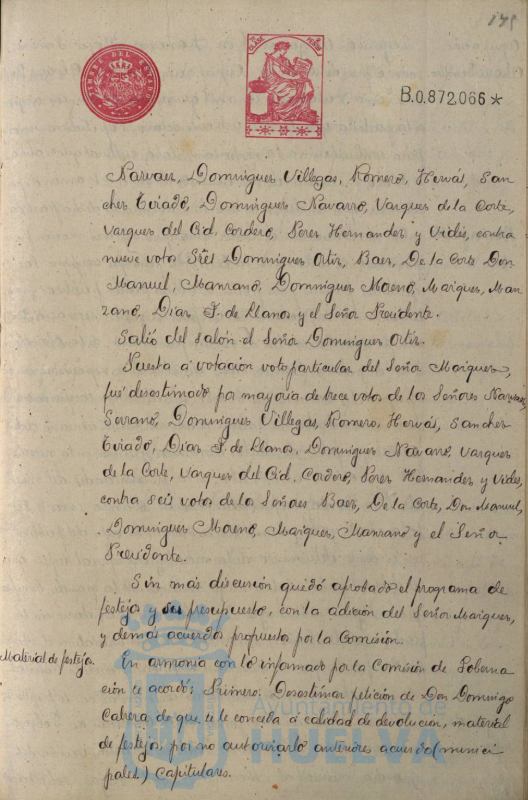 175
TIMBRE DEL ESTADO
B.0.872.066*
Narvaez, Dominguez Villegas, Romero, Hervás, San
chez Tirado, Dominguez Navarro, Vazquez de la Corte,
Vazquez del Cid, Cordero, Perez Hernandez y Vides, contra
nueve votos Srēs Dominguez Ortiz, Baez, De la Corte Don
Manuel, Manzano, Dominguez Moreno, Marquez, Man
zano, Diaz F. de Llanos y el Señor Presidente.
Salió del salón el Señor Dominguez Ortiz.
Puesta á votación voto particular del Señor Marquez,
fué desestimado por mayoria de trece votos de los Señores Narvaez,
Serrano, Dominguez Villegas, Romero, Hervás, Sanchez
Tirado, Diaz F. de Llanos, Dominguez Navarro, Vazquez
de la Corte, Vazquez del Cid, Cordero, Perez Hernandez y Vides,
contra seis votos de los Señores Baez, De la Corte, Don Manuel,
Dominguez Moreno, Marquez, Manzano y el Señor
Presidente.
Sin más discusión quedó aprobado el programa de
festejos y su presupuesto, con la adición del Señor Marquez,
y demás acuerdos propuesto por la Comisión.
Material de festejos.
En armonia con lo informado por la Comisión de Goberna
ción se acordó: Primero: Desestimar petición de Don Domingo
Cabrera de que se le conceda á calidad de devolución, material
de festejos, por no autorizarlo anteriores acuerdo (munici
pales) Capitulares.
Ayuntamiento de
HUELVA